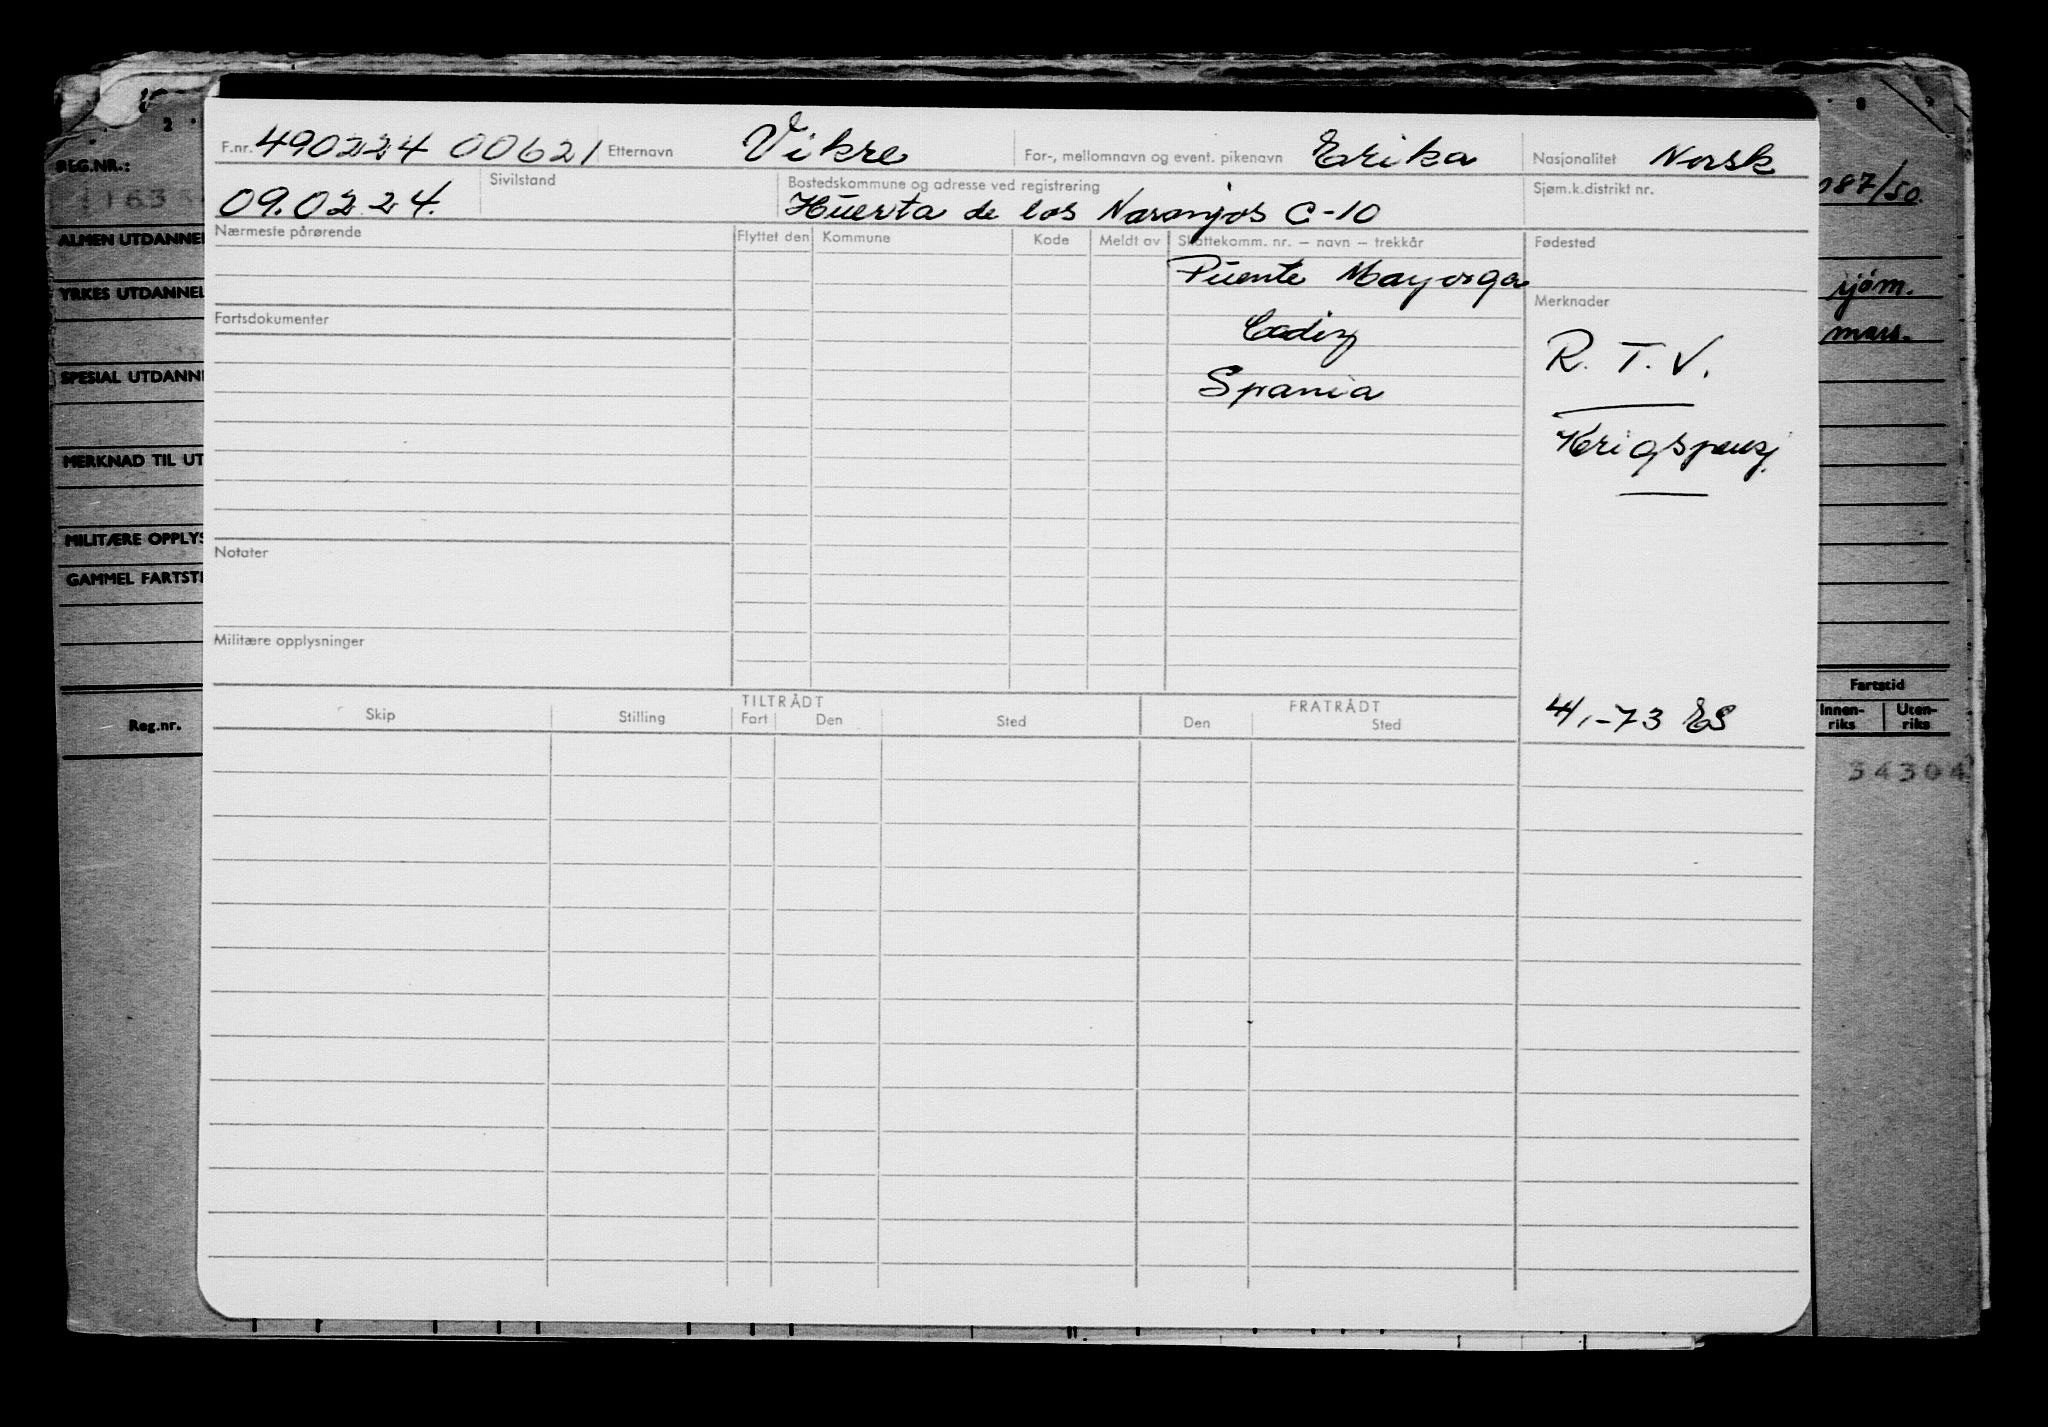 F.nr. 490224 00621 Etternavn Vikre For-, mellomnavn og event. pikenavn Erika Nasjonalitet Norsk
09.02.24. Sivilstand Bostedskommune og adresse ved registrering Sjøm.k.distrikt nr.
Huerta de los Naranjos C-10
Nærmeste pårørende Flyttet den Kommune Kode Meldt av Skattekomm. nr. – navn – trekkår Fødested
Puente Mayorga
Merknader
Fartsdokumenter
Cadiz
R. T. V.
Spania
Krigspensj.
Notater
Militære opplysninger
4/1-73 ES
TILTRÅDT FRATRÅDT
Skip Stilling Fart Den Sted Den Sted
2 8 9
REG.NR.:
1163
087/50.
ALMEN UTDANNEL
YRKES UTDANNEL
sjøm.
mars.
SPESIAL UTDANN
MERKNAD TIL UT
MILITÆRE OPPLYS
GAMMEL FARTSTI
Fartstid
Reg.nr.
Innen-riks Uten-riks
34304